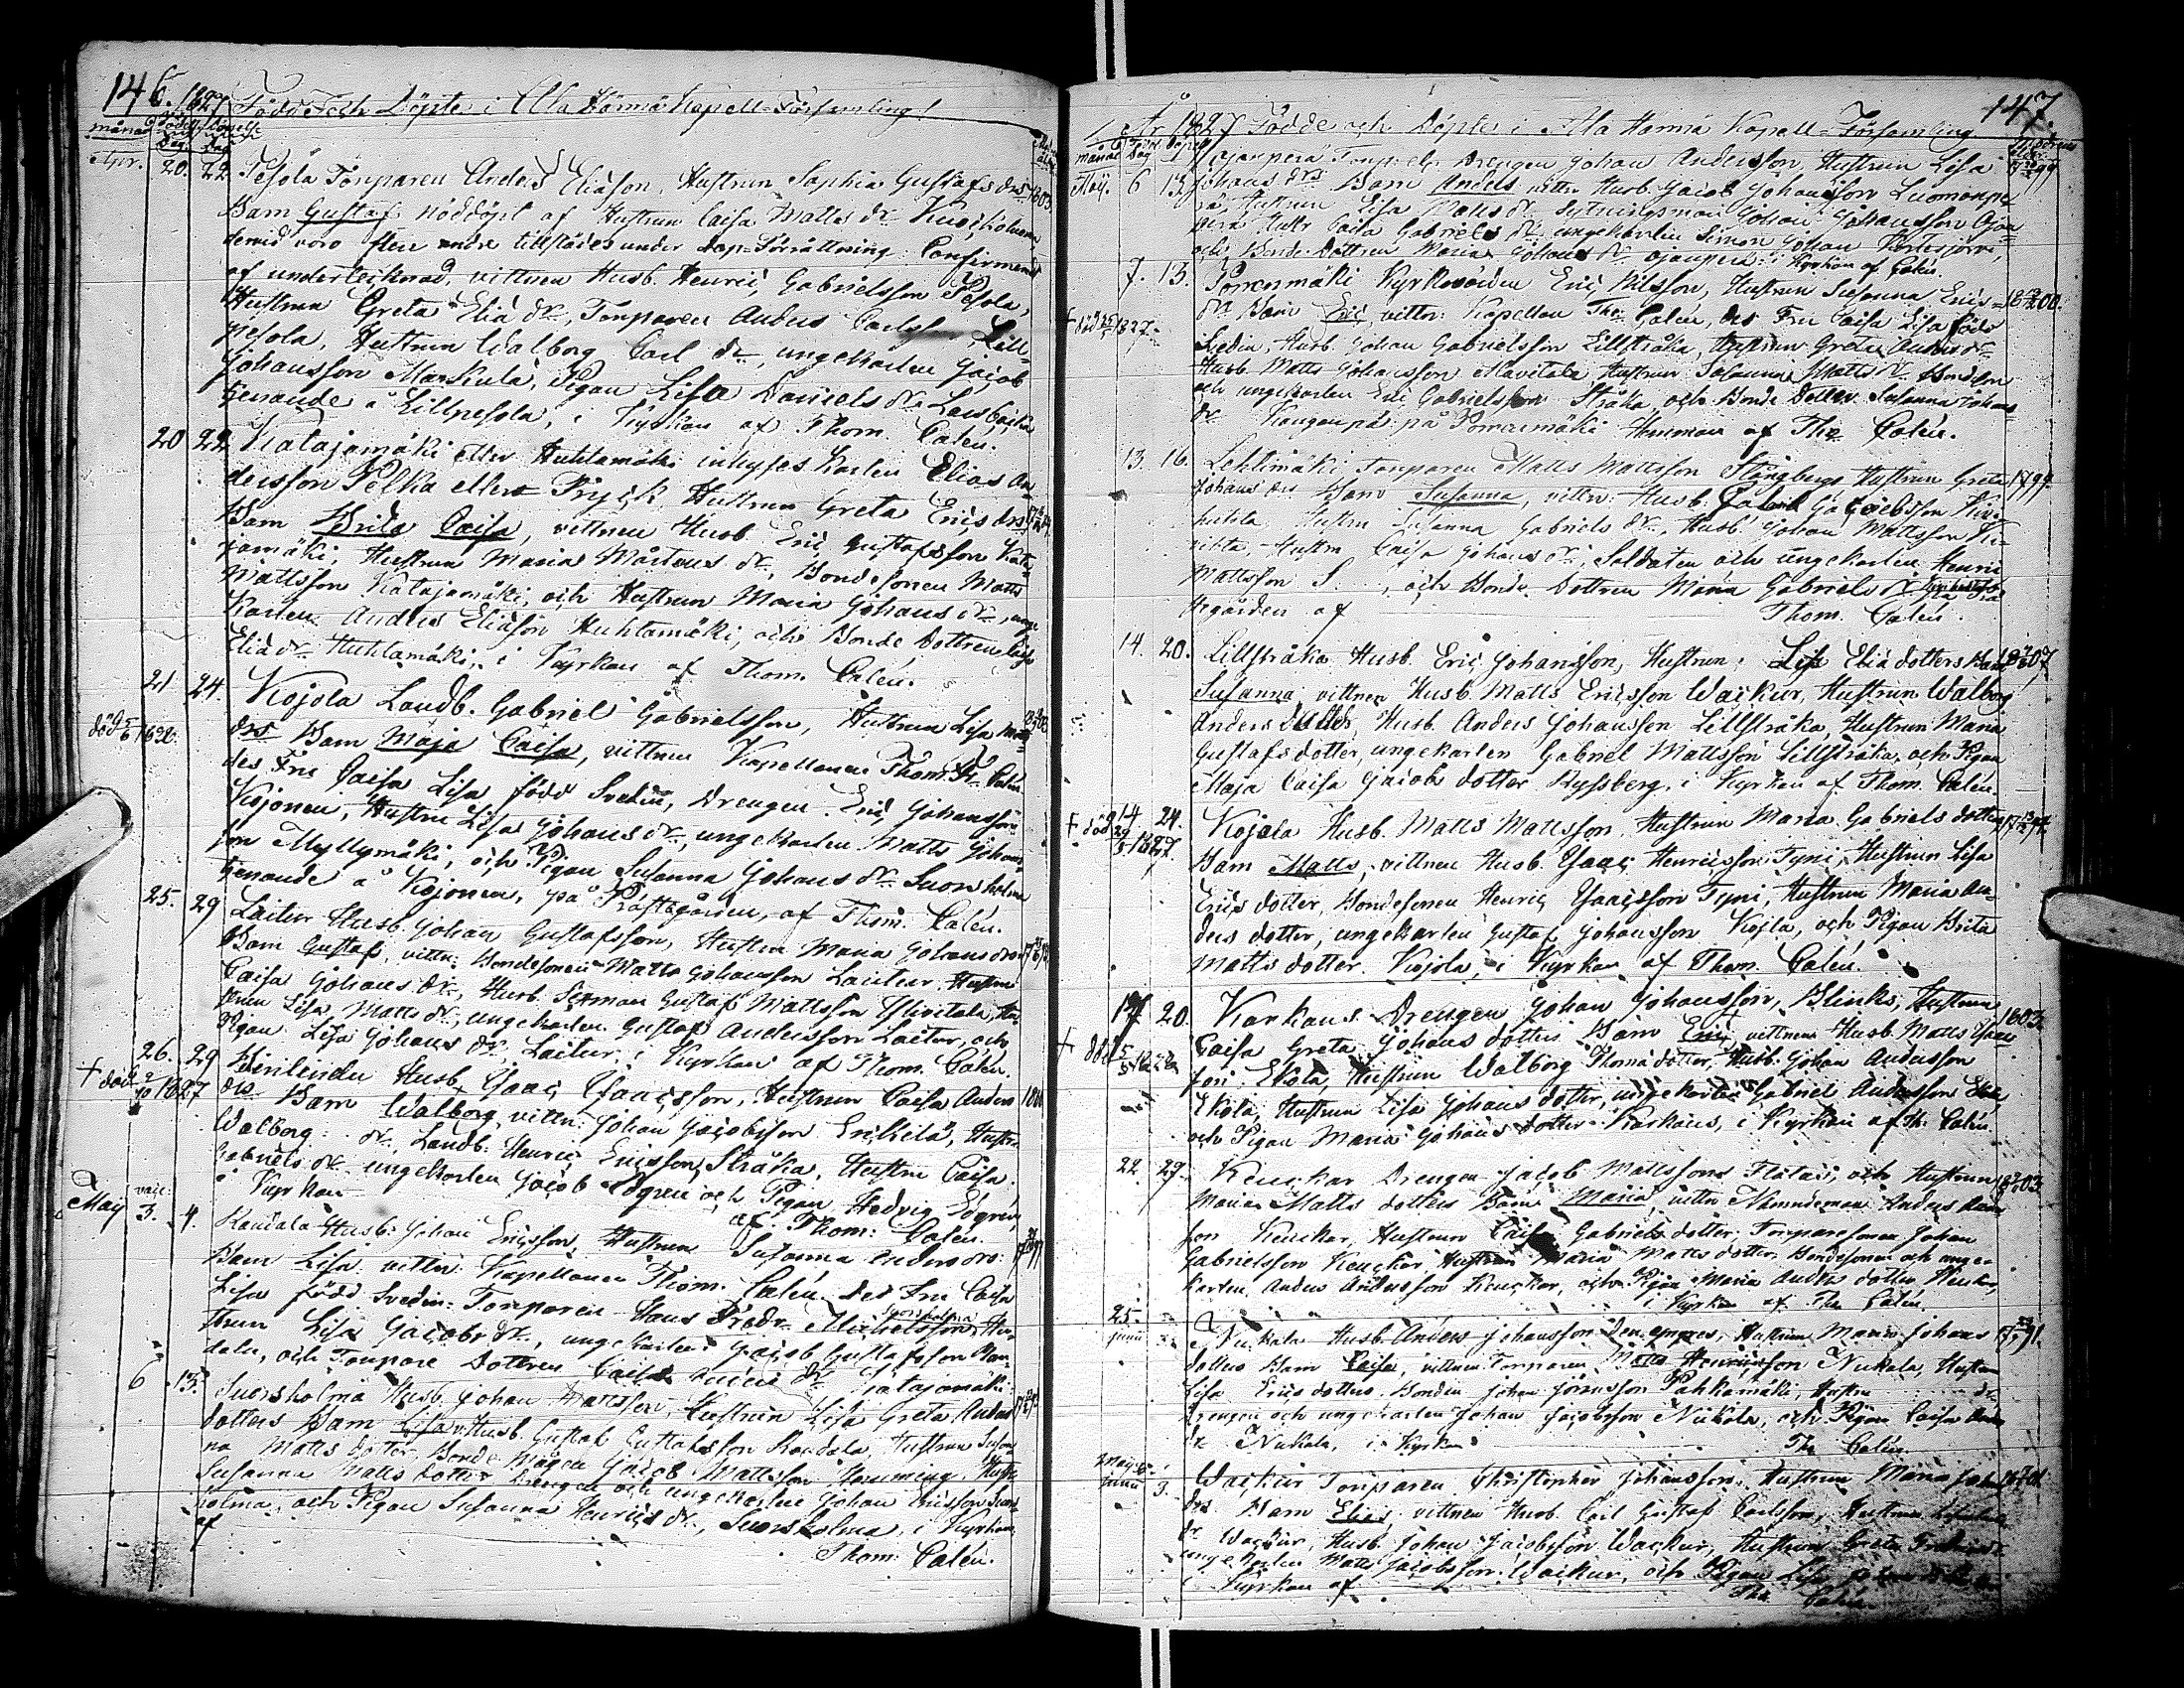 146. 1827 Född och Döpte i Ala Härmä Kapell-Församling
månad Födelse Dag Döpelse Dag
Apr. 20. 22. Pesola Torparen Anders Eliason, Hustrun Sophia Gustafs drs 1803
Barn Gustaf nöddöpt af Hustrun Caisa Matts dr
demid voro flere andre tillstädes under Dop-Förrättning Confirmerad
af undertecknad, vittnen Husb. Henric Gabrielsson Pesola,
Hustrun Greta Elia dr, Torparen Anders Carlsson Lill-
pesola, Hustrun Walborg Carl dr, ungekarlen Jacob
Johansson Markula, Pigan Lisa Daniels dr
tienande å Lillpesola, i Kyrkan af Thom. Calén.
20 22. Katajamäki eller Huhtamäki inhyses karlen Elias An-
dersson Pelka eller Hustrun Greta Erics drs
Barn Brita Caisa, vittnen Husb. Eric Gustafsson Kata-
jamäki, Hustrun Maria Mårtens dr, Bondesonen Matts
Mattsson Katajamäki, och Hustrun Maria Johans dr, unge
Karlen Anders Eliason Huhtamäki, och Bonde Dottren Lisa
Elia dr Huhtamäki, i Kyrkan af Thom. Calén.
21 24. Kojola Landb. Gabriel Gabrielsson, Hustrun Lisa Matts
död
drs Barn Maja Caisa, vittnen Kapellanen Thom. Calén
des Fru Caisa Lisa född Svedin, Drengen Eric Johansson
Kojonen, Hustru Lisa Johans dr, ungekarlen Matts Johans-
son Myllymäki, och Pigan Susanna Johans dr Suorsholma
tienande å Kojonen, på Prästgården, af Thom. Calén.
25. 29 Laitur Husb. Johan Gustafsson, Hustrun Maria Johans drs
Barn Gustaf, vittn: Bondesonen Matts Johansson Laitur, Hustrun
Caisa Johans dr, Husb. Sexman Gustaf Mattsson Ylivitala, Hu-
strun Lisa Matts dr, ungekarlen Gustaf Andersson Laitur, och
Pigan Lisa Johans dr, Laitur, i Kyrkan af Thom. Calén.
26. 29 Husb. Isaac Isaacsson, Hustrun Caisa Anders 1800
† död 9/10 1827
drs Barn Walborg, vittn: Johan Jacobsson Erikila, Hustru
Walborg dr, Landb. Henric Ericsson Stråka, Hustru Caisa
Gabriels dr ungekarlen Jacob Lögren och Pigan Hedvig Lögren
i Kyrkan af Thom: Calén.
May 3. 4. Kaudala Husb: Johan Ericsson, Hustrun Susanna Anders drs
Barn Lisa, vittn: Kapellanen Thom. Calén. Des Fru Caisa
Lisa född Svedin, Torparen Hans Fredr. Michelsson Suorsholma Hu-
strun Lisa Jacobs dr, ungekarlen Jacob Gustafsson Kau-
dala, och Torpare Dottren Caisa dr Katajamäki
6 13. Suorsholma Husb. Johan Mattsson, Hustrun Lisa Greta Anders
dotters Barn Lisa Husb. Gustaf Gustafsson Kaudala, Hustrun Susan-
na Matts dotter, Bonde Mågen Jacob Mattsson Hemming, Hustru
Susanna Matts dotter Drengen och ungekarlen Johan Ericsson Suors-
holma, och Pigan Susanna Henrics dr, Suorsholma, i Kyrkan
af Thom: Calén.
147.
År 1827 Födde och Döpte i Ala Härmä Kapell-Församling
månad Dag
Maij. 6 13. Ojanperä Torpare Drengen Johan Andersson, Hustrun Lisa
Johans drs Barn Anders vittn: Husb. Jacob Johansson Luomanpe-
rä, Hustrun Lisa Matts dr Sytningsman Johan Johansson Ojan
perä Hustr Caisa Gabriels dr ungekarlen Simon Johan
och Bonde Dottren Maria Johans dr Ojanperä i Kyrkan af Calén.
7. 13. Porrenmäki Kyrkovärden Eric Nilsson, Hustrun Susanna Erics 1800.
† död 1827.
dr Barn Eric, vittn: Kapellan Tho. Calén, des Fru Caisa Lisa född
Svedin, Husb. Johan Gabrielsson Lillstråka, Hustrun Greta Anders dr
Husb. Matts Johansson Alavitala Hustrun Susanna Matts dr Bondeson
och ungekarlen Eric Gabrielsson Stråka, och Bonde Dottren Susanna Johans
dr Kangenpä på Porrenmäki Hemman af Tho. Calén.
13. 16. Lehtimäki Torparen Matts Mattsson Stångberg Hustrun Greta 1799.
Johans drs Barn Susanna, vittn: Husb. Jacobsson
Hustru Susanna Gabriels dr, Husb. Johan Mattsson
Hustru Caisa Johans dr, Soldaten och ungekarlen Henric
Mattsson S..., och Bonde Dottren Maria Gabriels dr
gården af Thom. Calén.
14. 20. Lillstråka Husb. Eric Johansson, Hustrun Lisa Elia dotters Barn 1807
Susanna vittnen Husb. Matts Ericsson Wackur, Hustrun Walborg
Anders dotter, Husb. Anders Johansson Lillstråka, Hustrun Maria
Gustafs dotter, ungekarlen Gabriel Mattsson Lillstråka, och Pigan
Maja Caisa Jacobs dotter Ryssberg, i Kyrkan af Thom. Calén.
14 24. Kojola Husb. Matts Mattsson, Hustrun Maria Gabriels dotters
† död 29/5 1827.
Barn Matts, vittnen Husb. Isaac Henricsson Tyni, Hustrun Lisa
Erics dotter, Bondesonen Henric Isaacsson Tyni, Hustrun Maria An-
ders dotter, ungekarlen Gustaf Johansson Kojola, och Pigan Brita
Matts dotter Kojola, i Kyrkan af Thom. Calén.
17. 20. Karkaus Drengen Johan Johansson Blinks, Hustrun 1803.
† död
Caisa Greta Johans dotters Barn Eric, vittnen Husb. Matts Isaacs
son Ekola, Hustrun Walborg Thoma dotter, Husb. Johan Andersson
Ekola, Hustrun Lisa Johans dotter, ungekarlen Gabriel Andersson
och Pigan Maria Johans dotter Karkaus, i Kyrkan af Th. Calén.
22 29. Keuckar Drengen Jacob Mattssons och Hustruns 1803
Maria Matts dotters Barn Maria, vittn Nämndeman Anders Anders
son Keuckar, Hustrun Caisa Gabriels dotter, Torparesonen Johan
Gabrielsson Keuckar, Hustrun Maria Matts dotter, Bondesonen och unge-
karlen Anders Andersson Keuckar, och Pigan Maria Anders dotter Keuckar,
i Kyrkan af Tho Calén.
25. Juni 3. Nukala Husb. Anders Johansson den yngres, Hustrun Maria Johans 1791.
dotters Barn Caisa, vittnen Torparen Matts Henricsson Nukala, Hustrun
Lisa Erics dotter, Bonden Johan Jöransson Pahkamäki, Hustru dr
Drengen och ungekarlen Johan Jacobsson Nukala, och Pigan Caisa
dr Nukala, i Kyrkan Tho Calén.
Maij Junii 3. Wackur Torparen Christopher Johansson, Hustrun Maria Johans
drs Barn Elias vittnen Husb. Carl Gustaf Carlsson, Hustrun
dr Wackur, Husb. Johan Jacobsson Wackur, Hustrun Greta
ungekarlen Matts Jacobsson Wackur, och Pigan Lisa
i Kyrkan af Tho Calén.